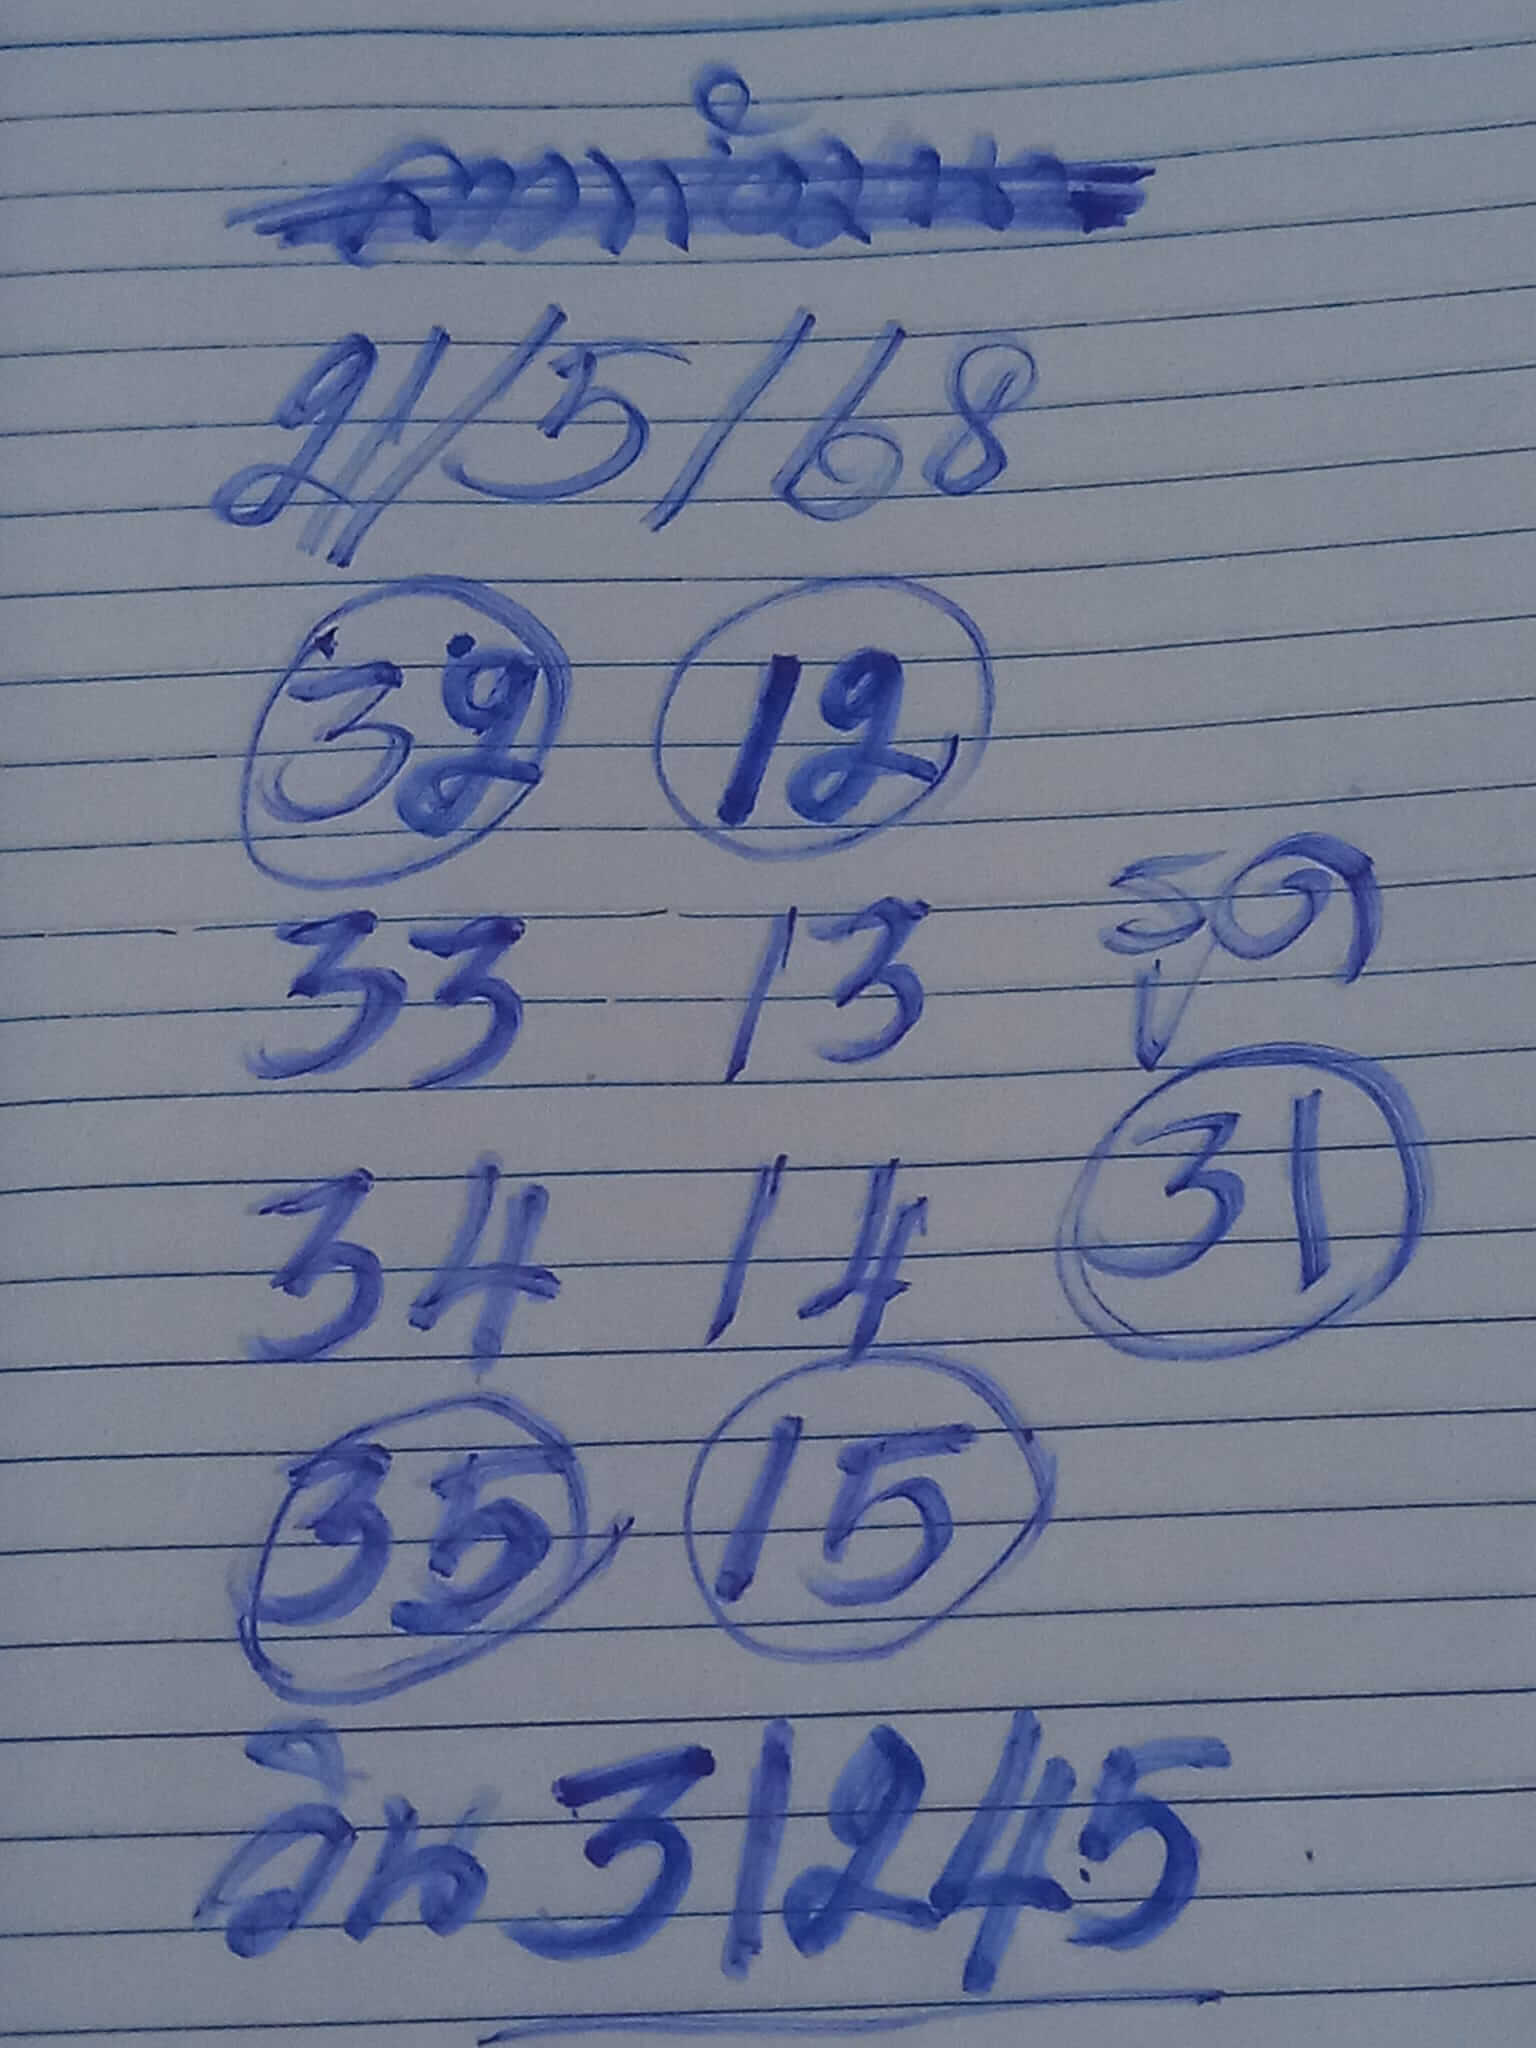 21/5/68
32 12
33 13
รูด
34 14
31
35 15
วิน 31245